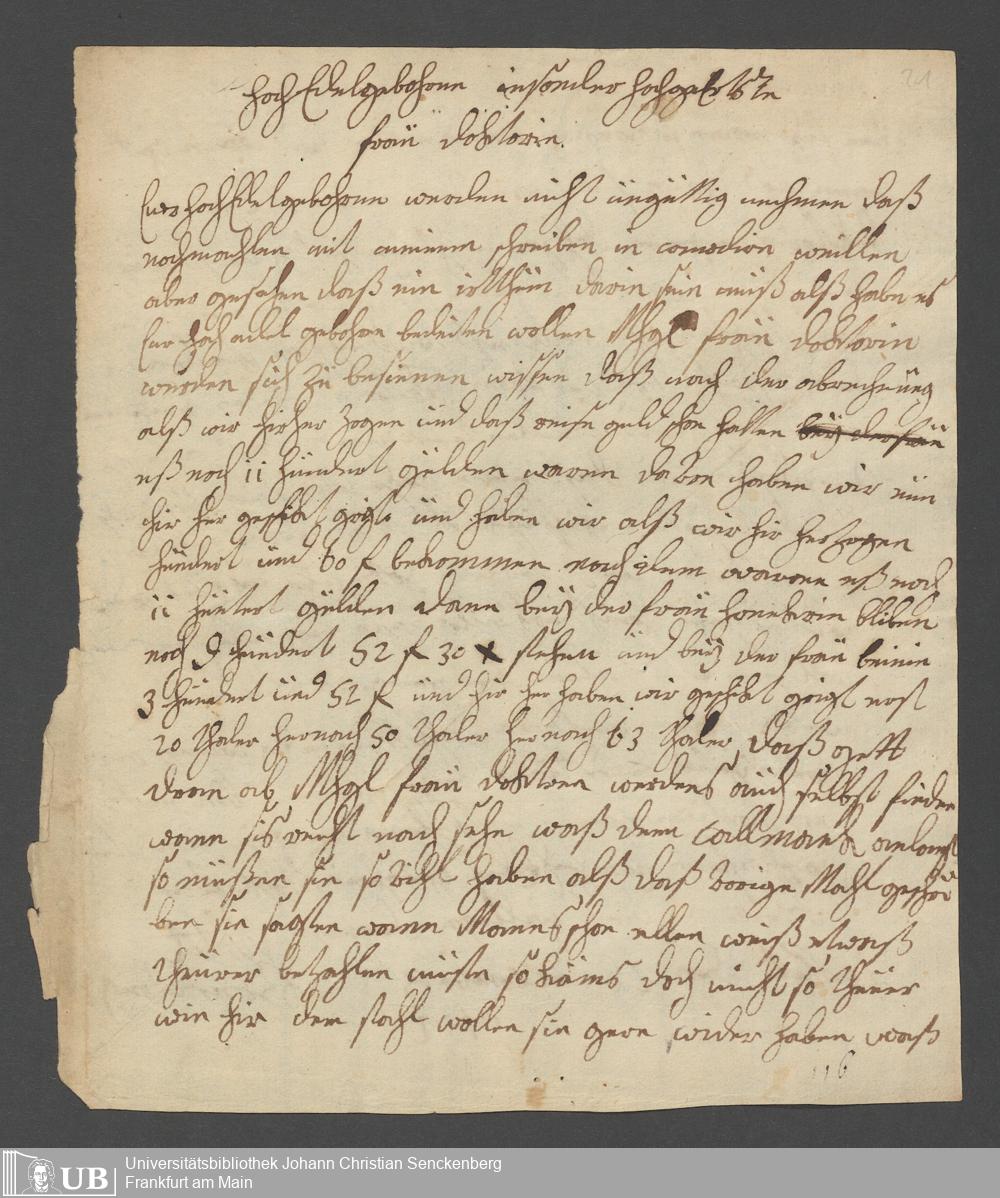 21
Hoch Edelgebohrne insonder hochgeehrtste
frau doktorin.
Euer Hoch Edelgebohrne werden nicht ungüttig nehmen daß
nochmahlen mit meinem schreiben in comodire weillen
aber gesehen daß ein irthum darin sein muß alß habe es
Eur Hoch adel gebohrn bedeiten wollen Mhgl frau doktorin
werden sich zu besienen wissen daß nach der abrechnung
alß wir hirher zogen und daß reise geld schon hatten bey der frau
eß noch 11 hundert gulden waren davon haben wir nun
hir her geschikt und haben wir alß wir hir her zogen
hundert und 60 f bekommen nach dem waren eß noch
11 huntert gulden dann bey der frau bliben
noch 9 hundert 52 f 30 x stehen und bey der frau
3 hundert und 52 f und hir her haben wir geschikt erst
20 thaler hernach 50 thaler hernach 63 thaler daß gett
dran ab Mhgl frau doktorn werdens auch selbst finden
wann sis recht nach sehn waß dem callmank anlangt
so müßen sie so vihl haben alß daß vorige Mahl geschri
ben sie sagten wann Manns schon ellen weiß etwaß
theurer bezahlen müste so käms doch nicht so theuer
wie hir den stoff wollen sie gern wider haben waß
116
UB
Universitätsbibliothek Johann Christian Senckenberg
Frankfurt am Main